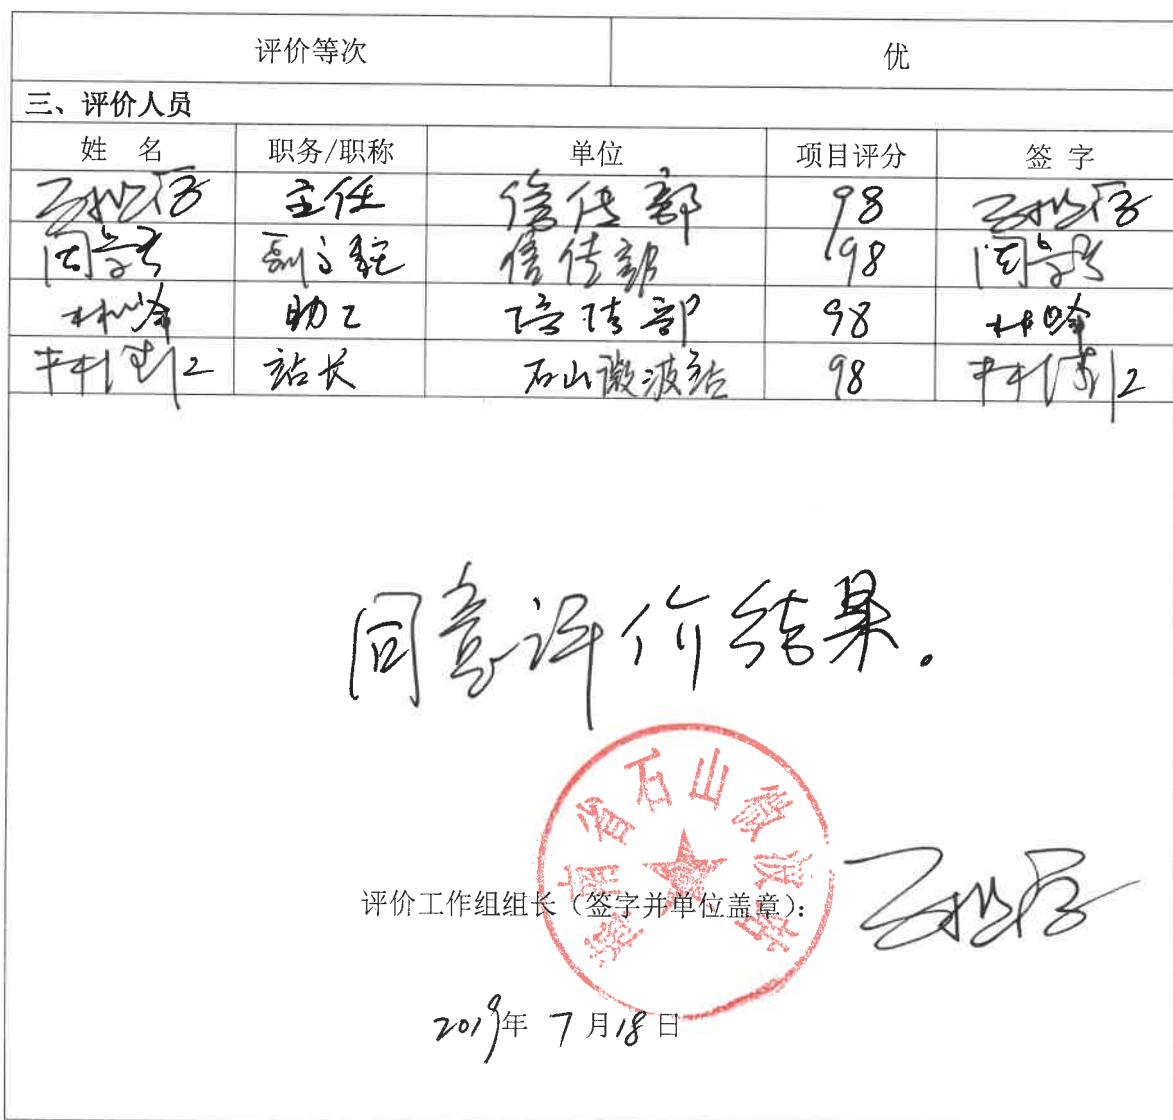 评价等次 优
三、评价人员
姓 名 职务/职称 单位 项目评分 签 字
主任 信传部 98
副主任 信传部 98
助工 信传部 98
站长 石山微波站 98
同意评价结果。
海南省石山微波站
评价工作组组长（签字并单位盖章）：
2019年 7月18日